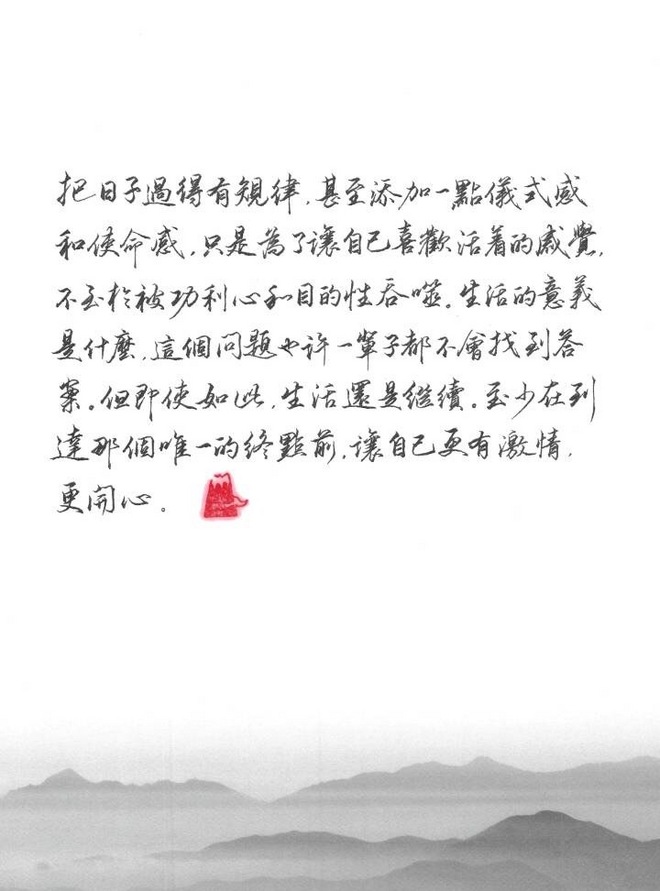 把日子過得有規律,甚至添加一點儀式感
和使命感,只是為了讓自己喜歡活着的感覺,
不至於被功利心和目的性吞噬。生活的意義
是什麼,這個问题也许一輩子都不會找到答
案。但即使如此,生活還是繼續。至少在到
達那個唯一的终點前,讓自己更有激情,
更開心。